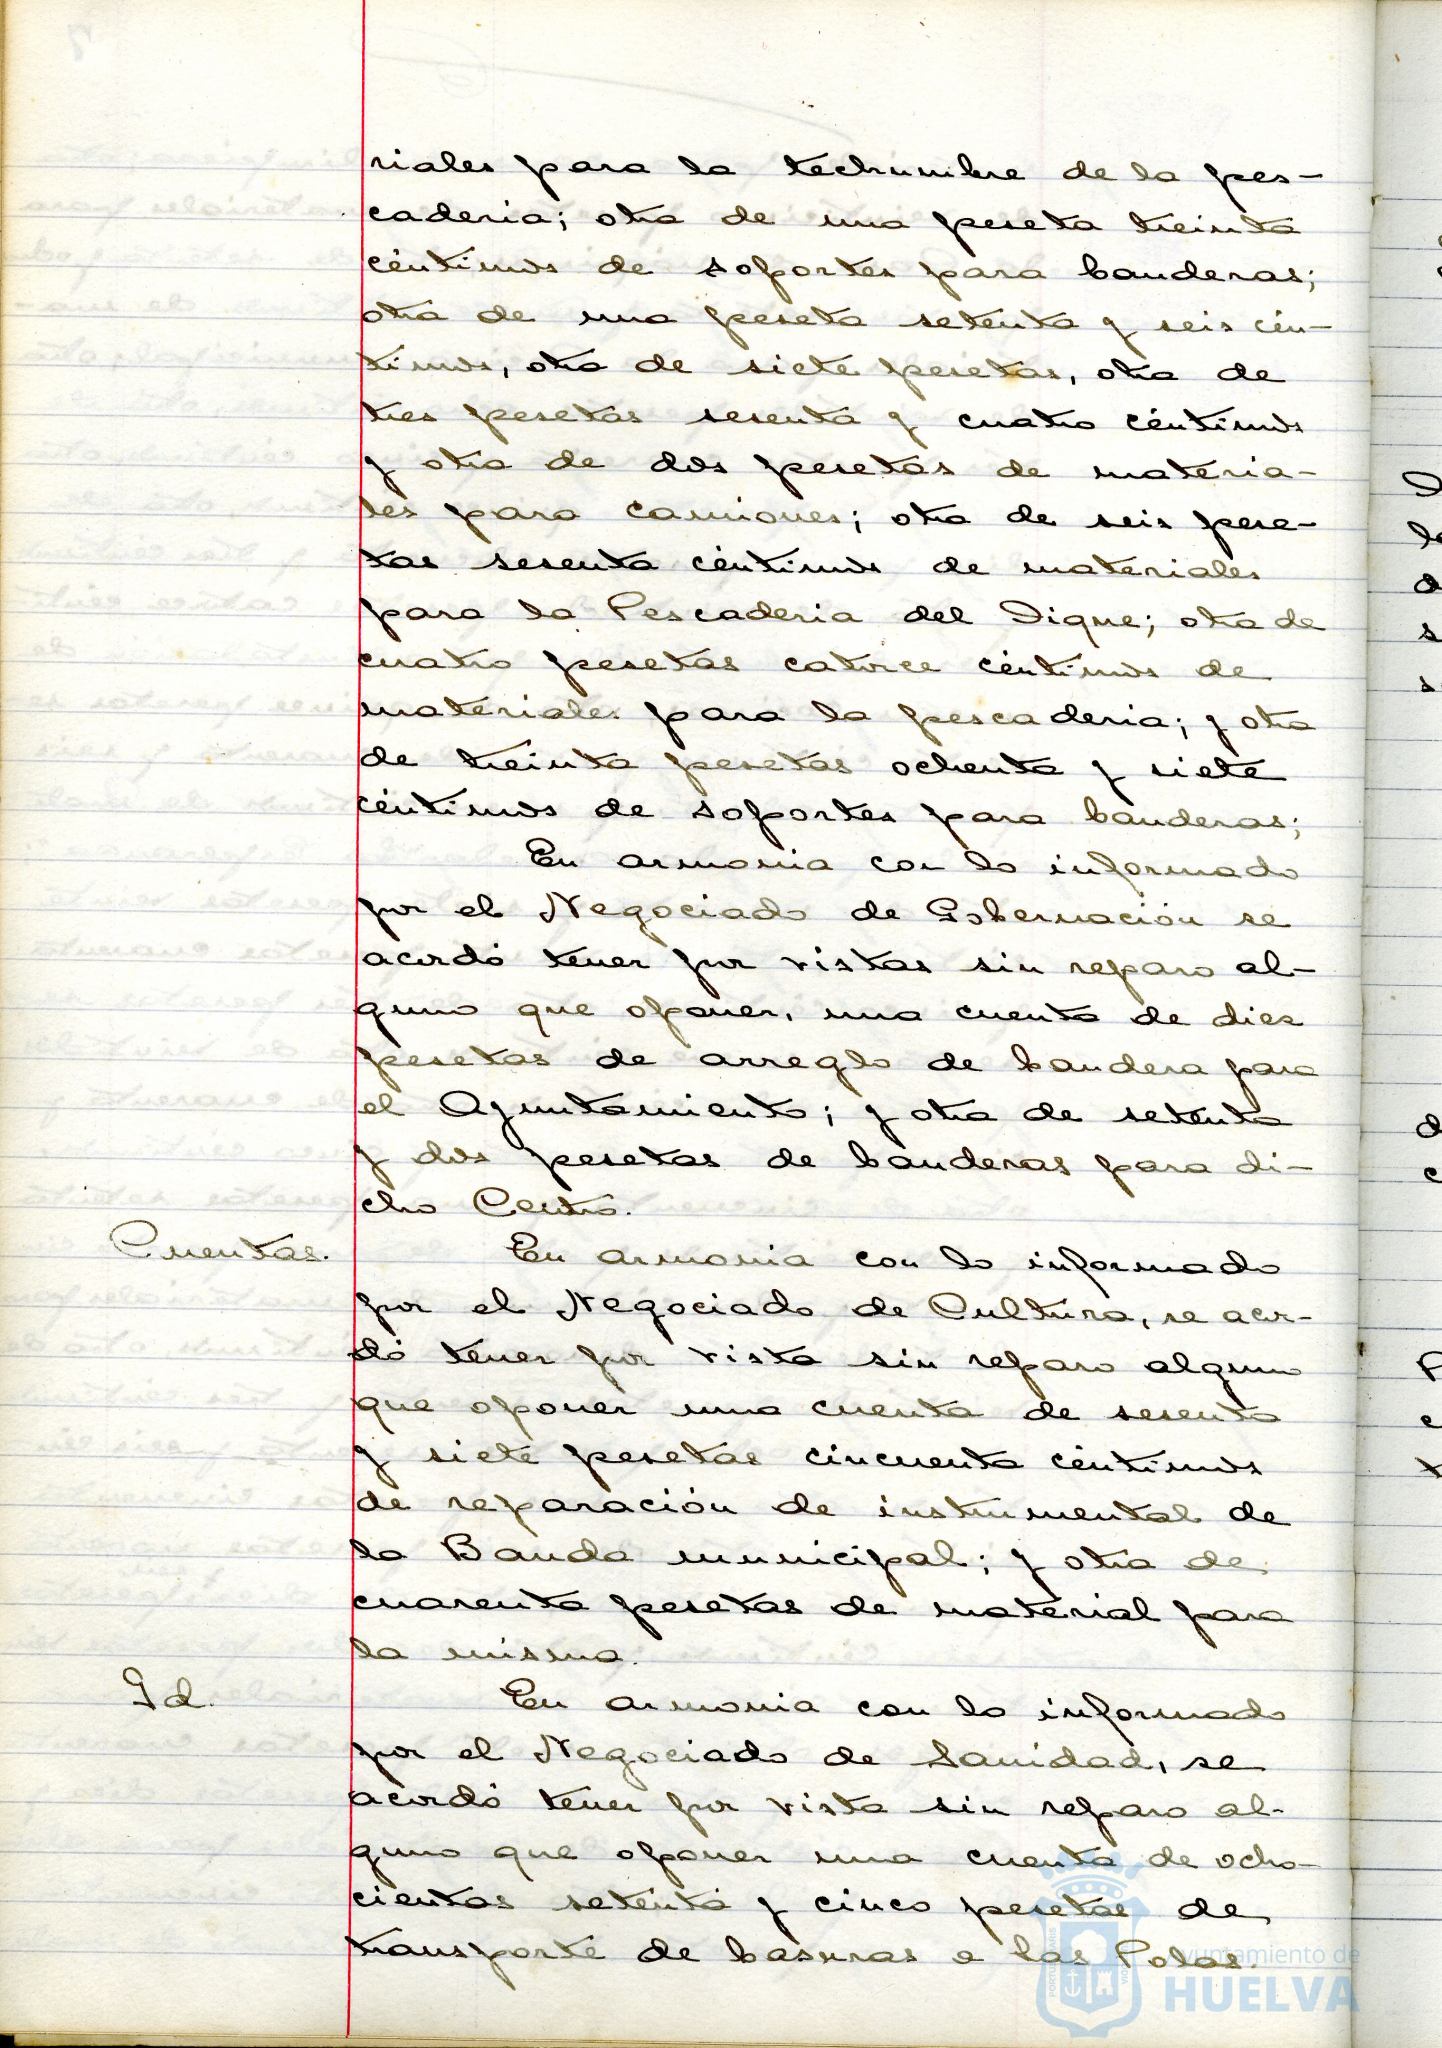 riales para la techumbre de la pes-
caderia; otra de una peseta treinta
céntimos de soportes para banderas;
otra de una peseta setenta y seis cén-
timos, otra de siete pesetas, otra de
tres pesetas sesenta y cuatro céntimos
y otra de dos pesetas de materia-
les para camiones; otra de seis pese-
tas sesenta céntimos de materiales
para la Pescaderia del Dique; otra de
cuatro pesetas catorce céntimos de
materiales para la pescaderia; y otra
de treinta pesetas ochenta y siete
céntimos de soportes para banderas;
En armonia con lo informado
por el Negociado de Gobernación se
acordó tener por vistas sin reparo al-
guno que oponer, una cuenta de diez
pesetas de arreglo de bandera para
el Ayuntamiento; y otra de setenta
y dos pesetas de banderas para di-
cho Centro.
Cuentas. En armonia con lo informado
por el Negociado de Cultura, se acor-
dó tener por vista sin reparo alguno
que oponer una cuenta de sesenta
y siete pesetas cincuenta céntimos
de reparación de instrumental de
la Banda municipal; y otra de
cuarenta pesetas de material para
la misma.
Id. En armonia con lo informado
por el Negociado de Sanidad, se
acordó tener por vista sin reparo al-
guno que oponer una cuenta de ocho-
cientas setenta y cinco pesetas de
transporte de basuras a las Polas.
Ayuntamiento de
HUELVA